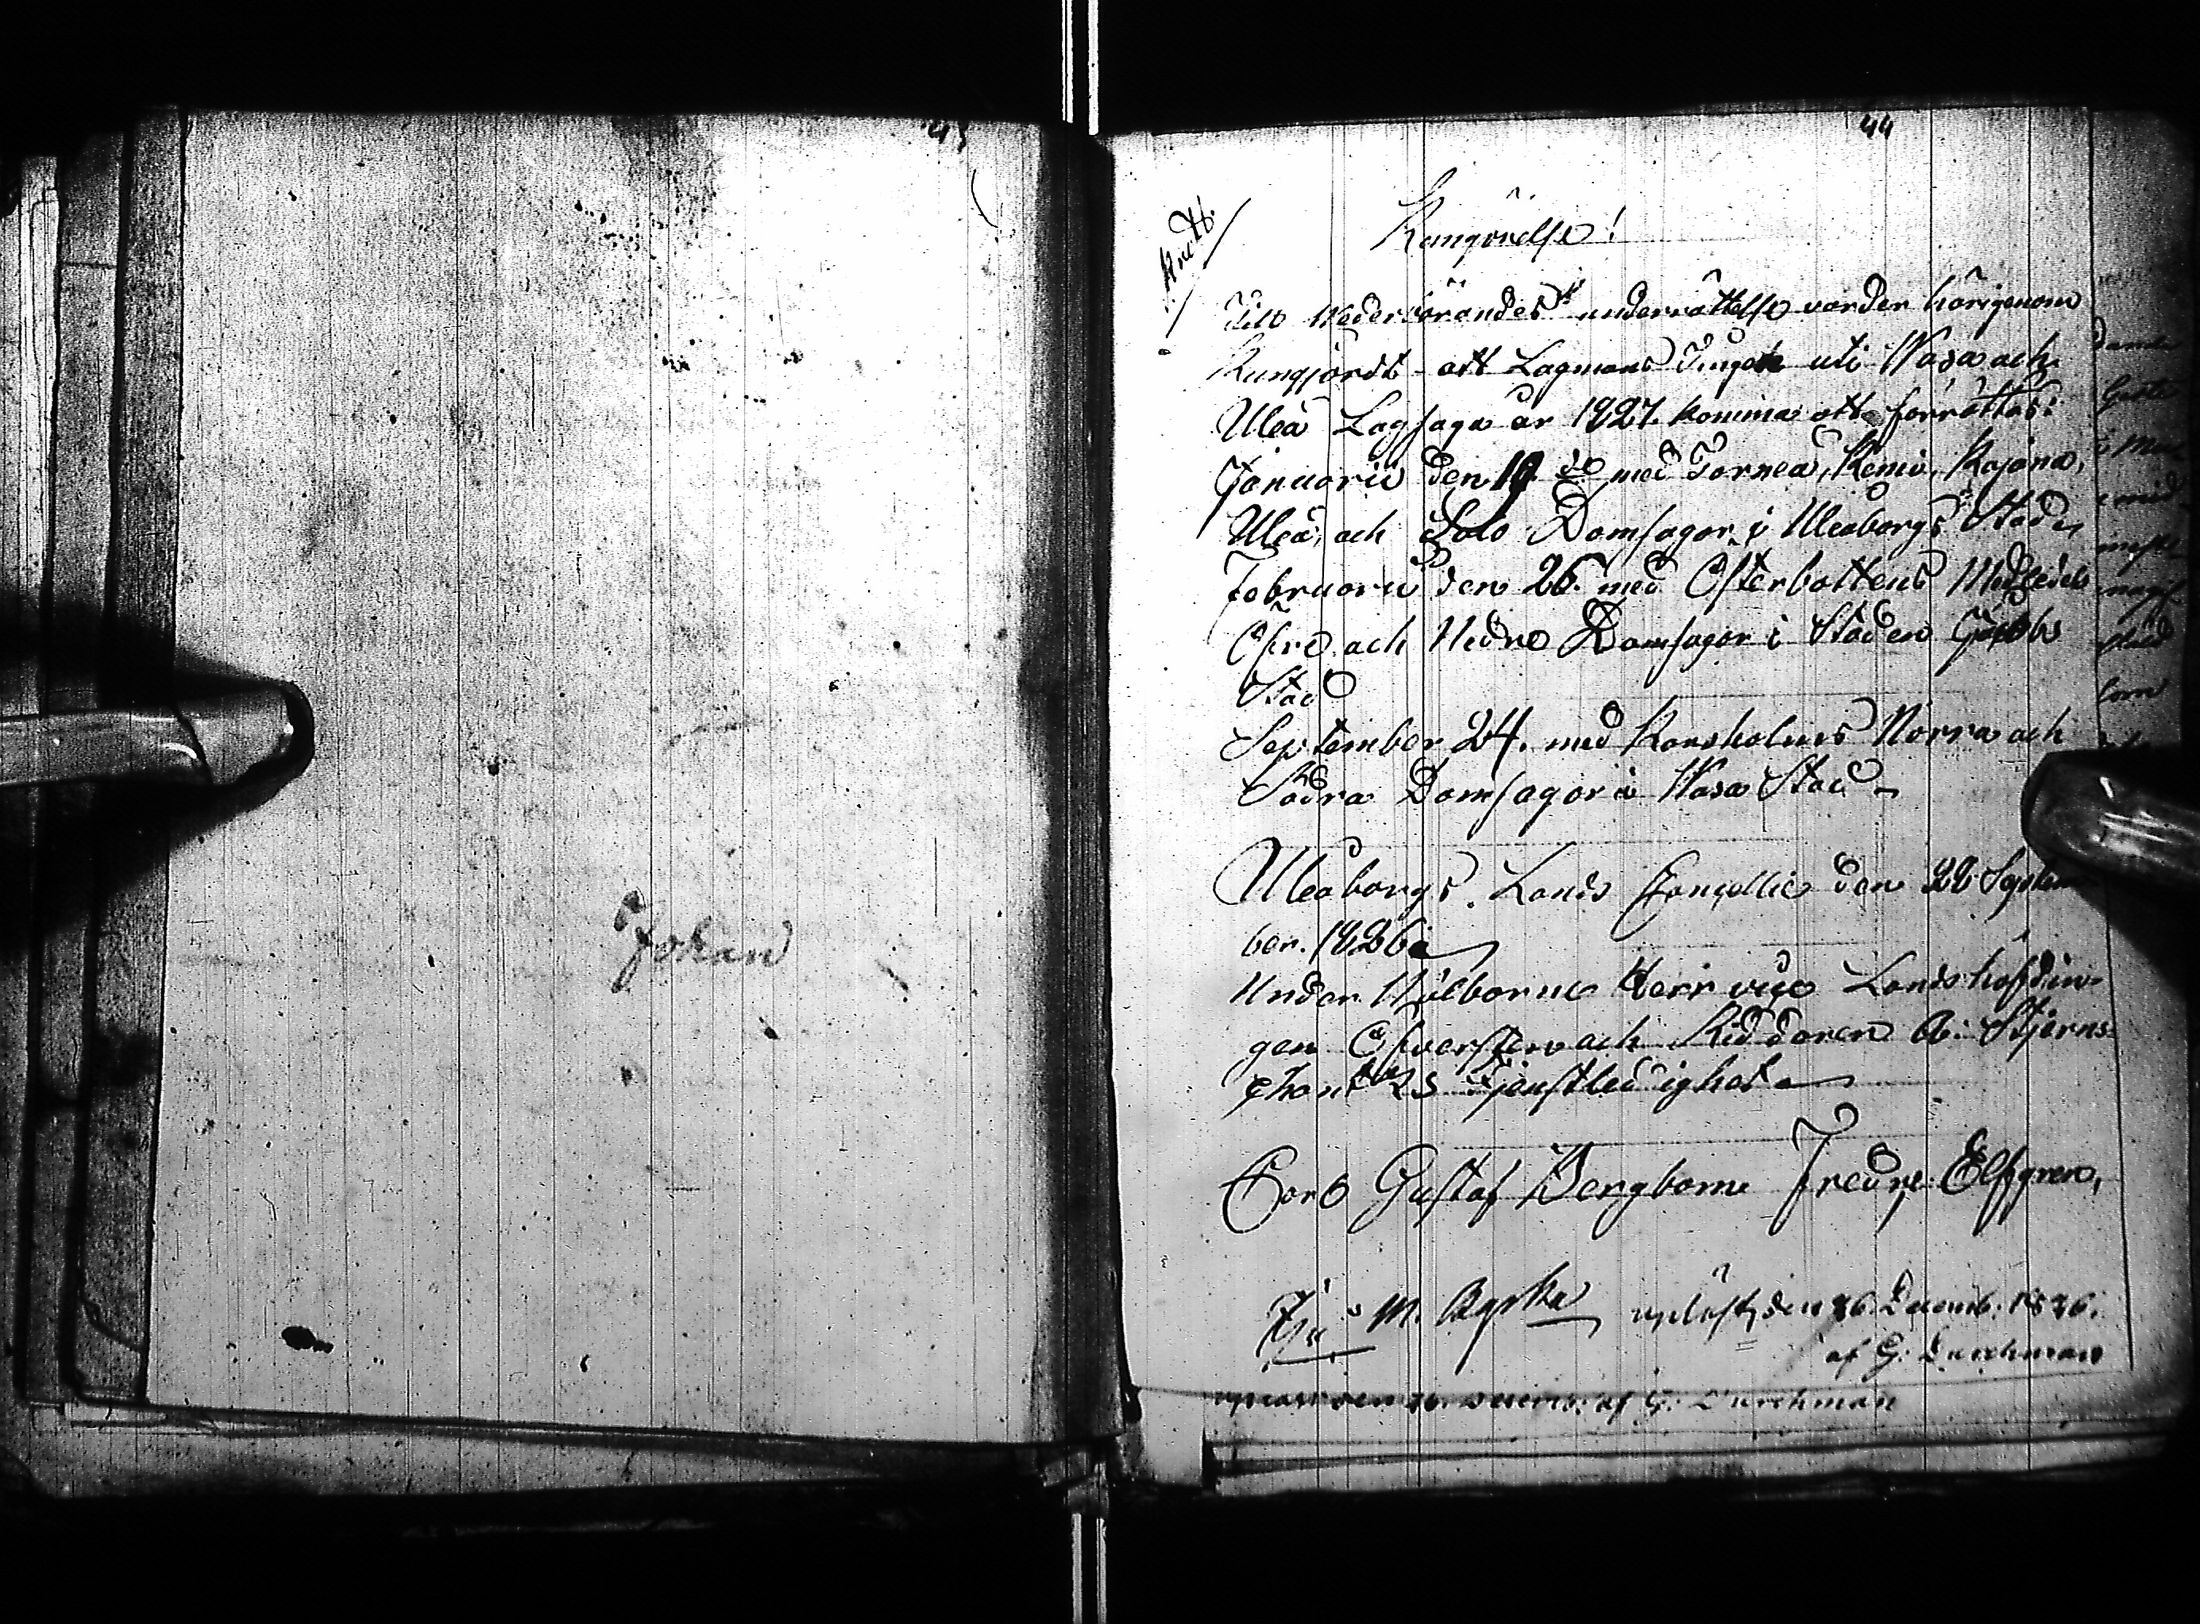 43
Johan
44
Kungörelse!
Till Wederbörandes underrättelse varder härigenom
Kungjordt att Lagmans Tingen uti Wasa och
Uleå Lagsaga år 1827. komma att förrättas:
Januarii den 19 med Torneå, Kemi, Kajana,
Uleå, och Salo Domsagor i Uleåborgs Stad,
Februarii den 26. med Österbottens Medledels
Öfre och Nedre Domsagor i Staden Jacobs
Stad
September 24. med Korsholms Norra och
Södra Domsagor i Wasa Stad
Uleåborgs Lands Cancellie den 22 Septem
ber. 1826.
Under Wälborne Herr vice Landshöfdin-
gen Öfversten och Riddaren A: Stjerns-
chantz's Tjenstledighet
Carl Gustaf Bergbom Fredr: Elfgren,
M. upläst den 26. Decemb: 1826.
af G: Durchman
den 26. Decemb: af G: Durchman